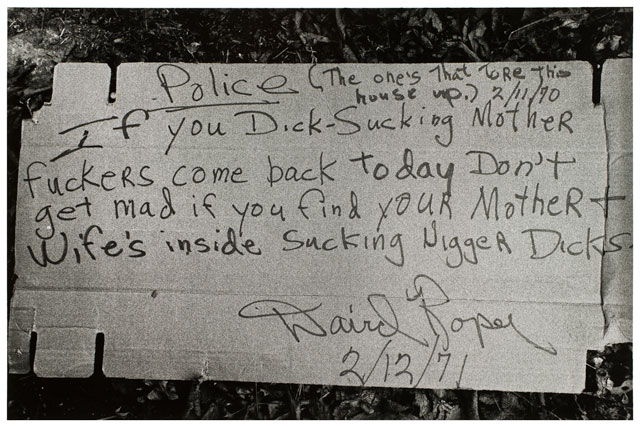 Police (The one's That tore this
house up.) 2/11/70
If you Dick-Sucking Mother
fuckers come back today Don't
get mad if you find your Mother +
Wife's inside sucking Nigger Dicks
Roper
2/12/71